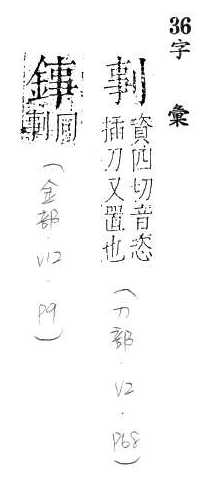 36字彙
剚
資四切音恣
插刀又置也
(刀部.V2.P68)
䥫
同剚
(金部.V12.P9)